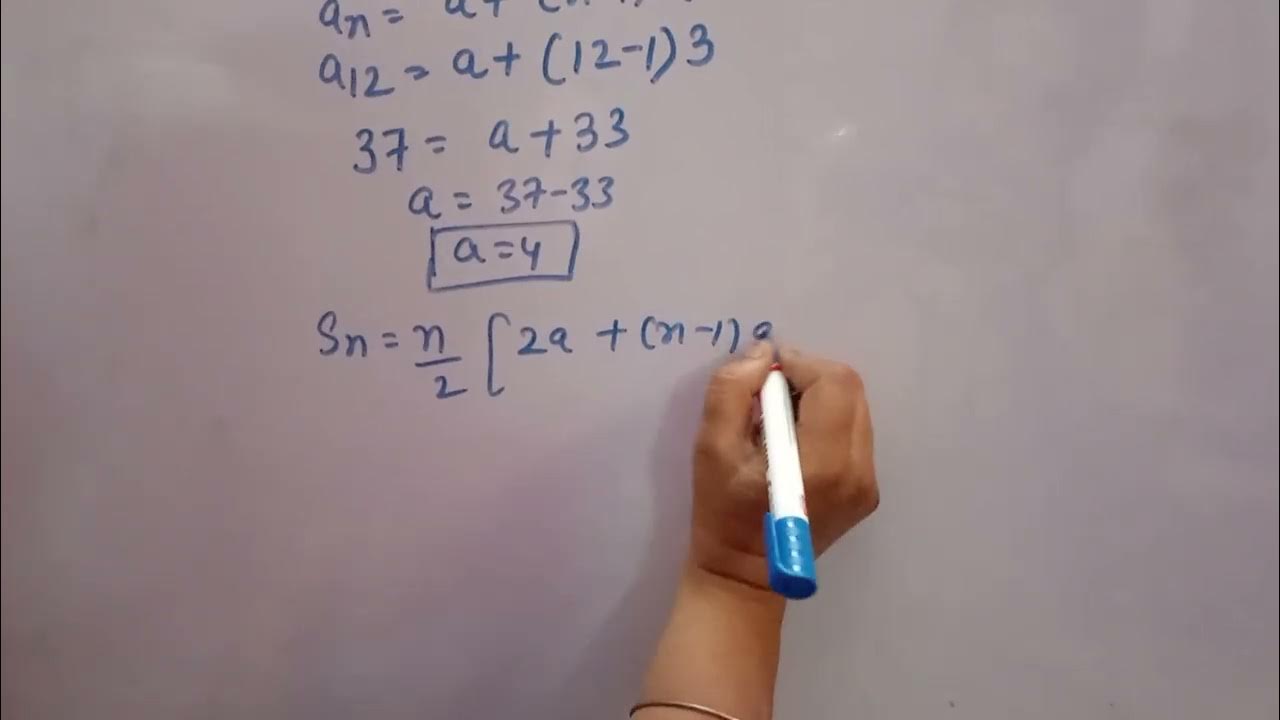 an =
a12 = a + (12-1)3
37 = a + 33
a = 37-33
a = 4
Sn = n/2 [2a + (n-1)